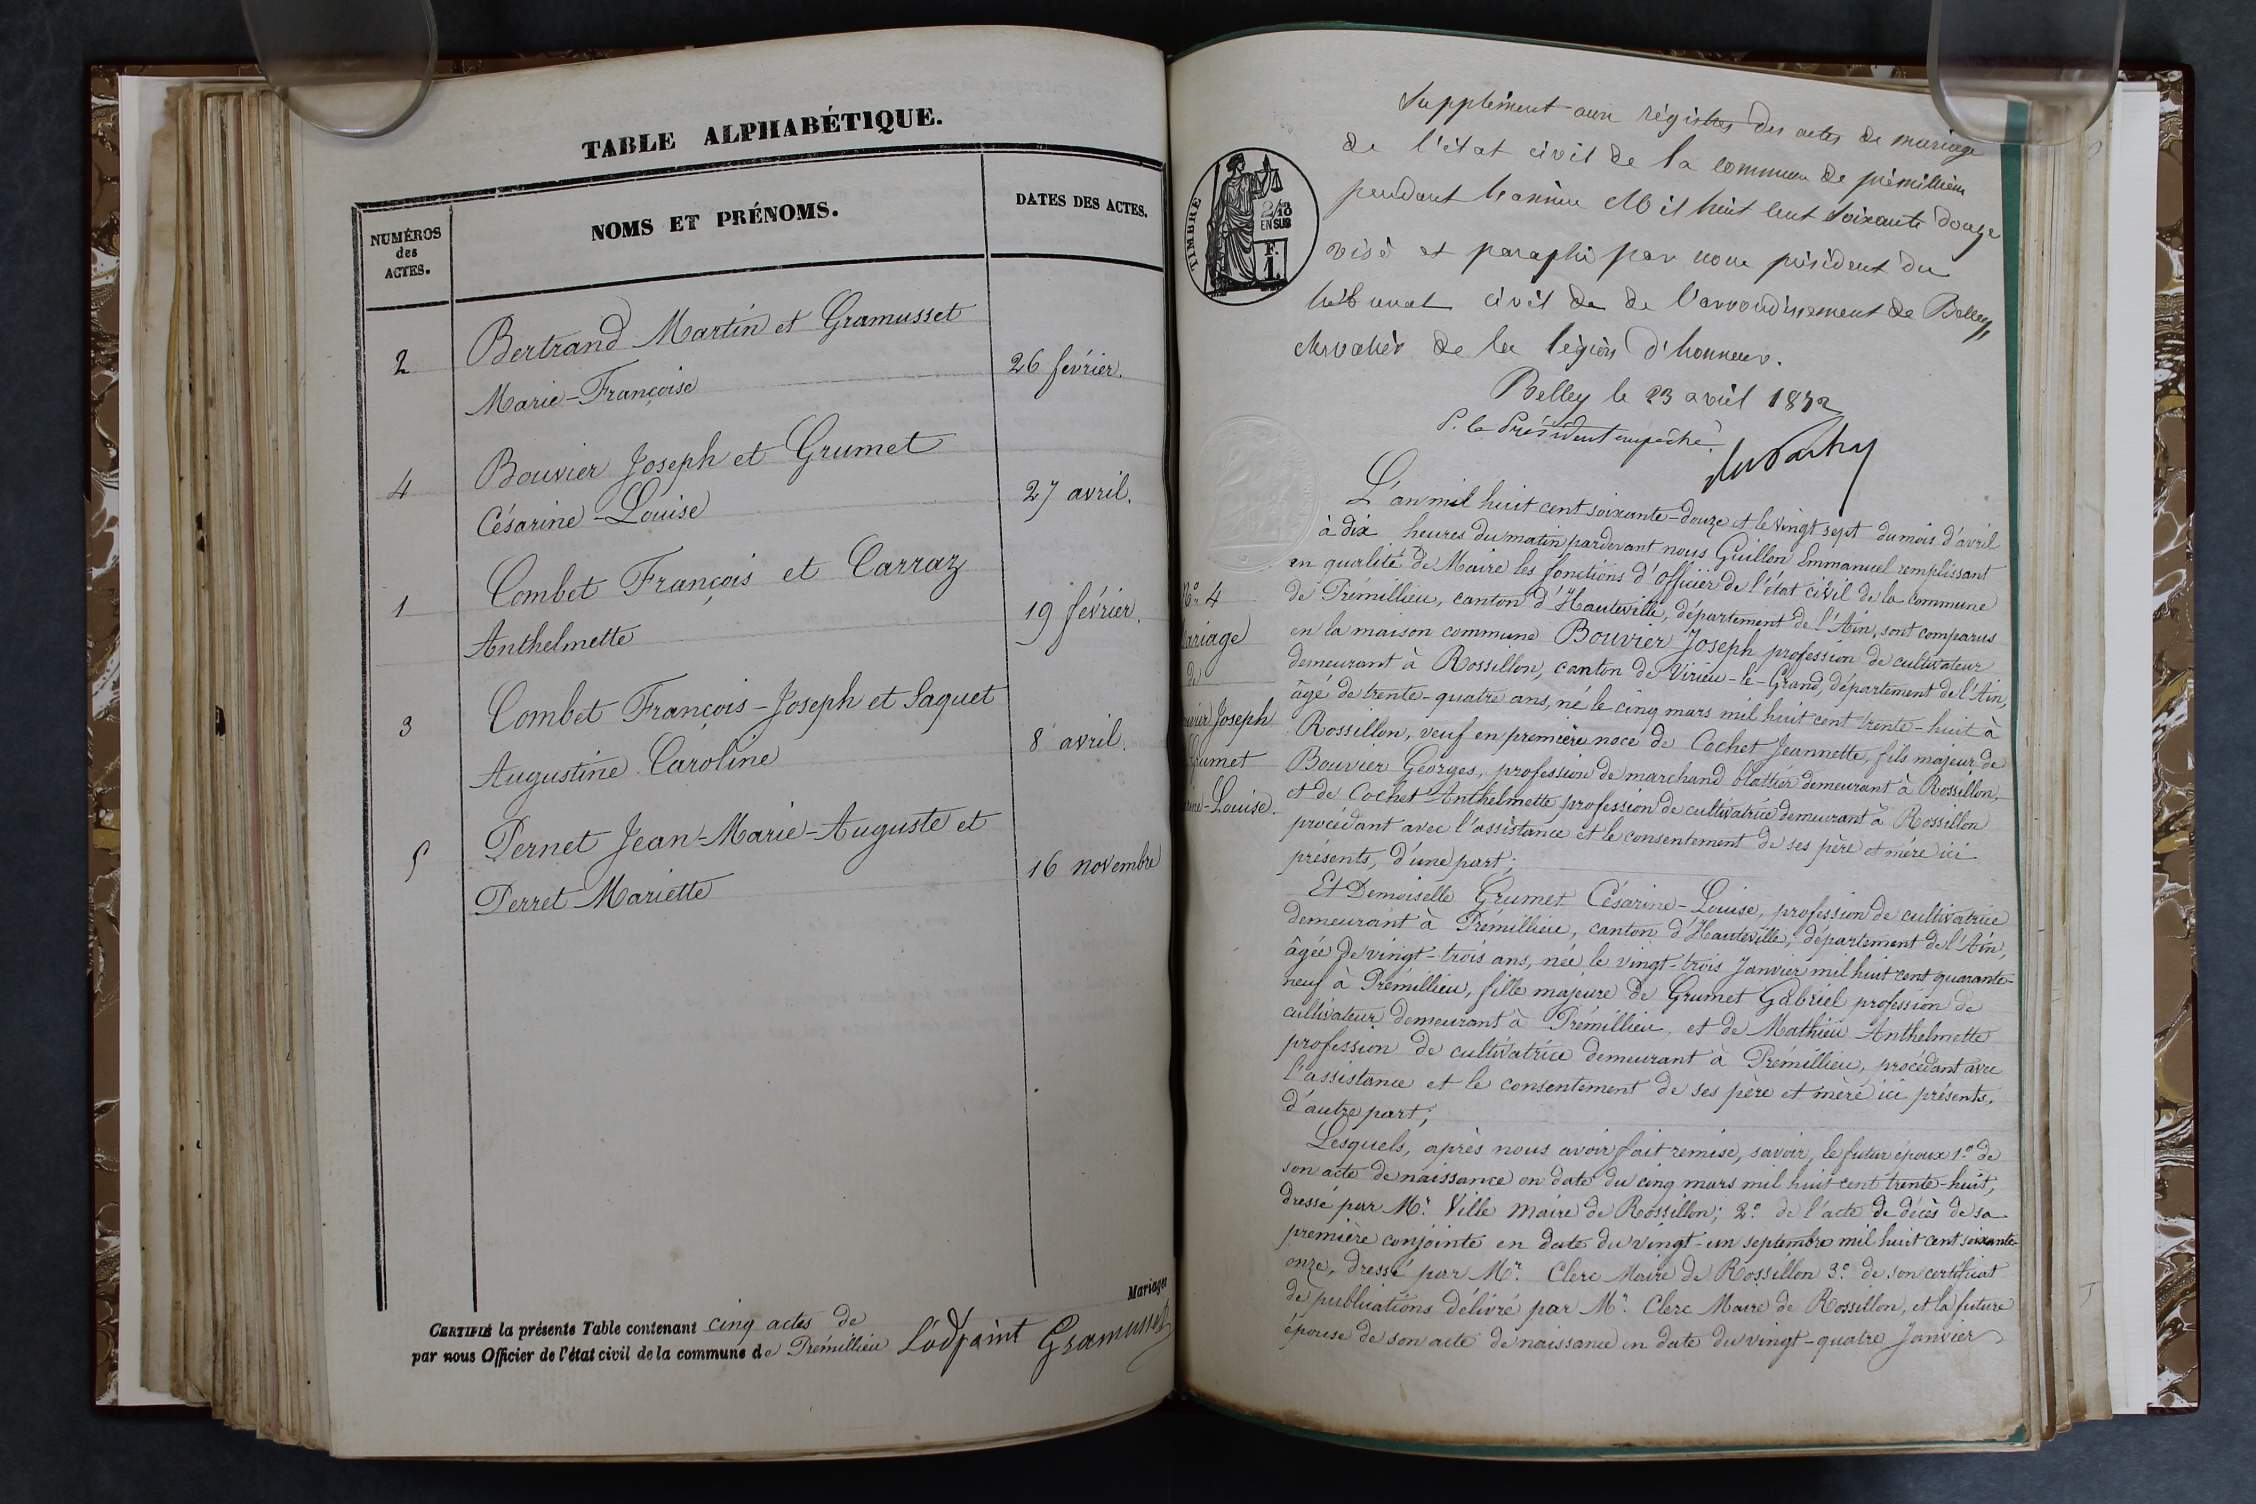 TABLE ALPHABÉTIQUE.
NUMÉROS
des
ACTES.
NOMS ET PRÉNOMS.
DATES DES ACTES.
2
Bertrand Martin et Gramusset
Marie-Françoise
26 février.
4
Bouvier Joseph et Grumet
Césarine-Louise
27 avril.
1
Combet François et Carraz
Anthelmette
19 février.
3
Combet François-Joseph et Saquet
Augustine Caroline
8 avril.
5
Pernet Jean-Marie-Auguste et
Perret Mariette
16 novembre
Mariages
CERTIFIÉ la présente Table contenant cinq actes de
par nous Officier de l'état civil de la commune de Prémillieu L'adjoint Gramusset
Supplément aux régistres des actes de mariage
de l'état civil de la commune de prémillieu
pendant l'année Mil huit cent soixante douze
visé et paraphé par nous président du
tribunal civil de de l'arrondissement de Belley,
chevalier de la légion d'honneur.
Belley le 23 avril 1872
P. le Président empêché
TIMBRE
2/10
EN SUS
F.
1.
L'an mil huit cent soixante-douze et le vingt sept du mois d'avril
à dix heures du matin pardevant nous Guillon Emmanuel remplissant
en qualité de Maire les fonctions d'officier de l'état civil de la commune
de Prémillieu, canton d'Hauteville, département de l'Ain, sont comparus
en la maison commune Bouvier Joseph profession de cultivateur
demeurant à Rossillon, canton de Virieu-le-Grand, département de l'Ain,
âgé de trente-quatre ans, né le cinq mars mil huit cent trente-huit à
Rossillon, veuf en première noce de Cochet Jeannette, fils majeur de
Bouvier Georges, profession de marchand blattier demeurant à Rossillon,
et de Cochet Anthelmette profession de cultivatrice demeurant à Rossillon
procédant avec l'assistance et le consentement de ses père et mère ici
présents, d'une part;
Et Demoiselle Grumet Césarine-Louise, profession de cultivatrice
demeurant à Prémillieu, canton d'Hauteville, département de l'Ain,
âgée de vingt-trois ans, née le vingt-trois Janvier mil huit cent quarante-
neuf à Prémillieu, fille majeure de Grumet Gabriel profession de
cultivateur demeurant à Prémillieu, et de Mathieu Anthelmette
profession de cultivatrice demeurant à Prémillieu, procédant avec
l'assistance et le consentement de ses père et mère ici présents,
d'autre part;
Lesquels, après nous avoir fait remise, savoir, le futur époux 1º de
son acte de naissance en date du cinq mars mil huit cent trente-huit,
dressé par Mr. Ville Maire de Rossillon; 2º de l'acte de décès de sa
première conjointe en date du vingt-un septembre mil huit cent soixante-
onze, dressé par Mr. Clerc Maire de Rossillon 3º de son certificat
de publications délivré par Mr. Clerc Maire de Rossillon, et la future
épouse de son acte de naissance en date du vingt-quatre Janvier
Nº 4
ariage
de
uvier Joseph
Grumet
rine-Louise.